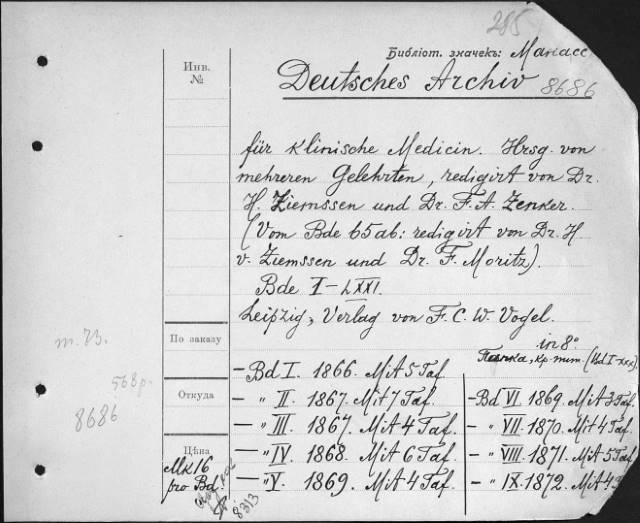 285
Библіот. значекъ: Манасс
Инв.
№
Deutsches Archiv 8686
für klinische Medicin. Hrsg. von
mehreren Gelehrten, redigirt von Dr.
H. Ziemssen und Dr. F. A. Zenker.
(Vom Bde 65 ab: redigirt von Dr. H.
v. Ziemssen und Dr. F. Moritz).
Bde I-LXXI.
Leipzig, Verlag von F. C. W. Vogel.
in 8°
Папка, кр. тит. (Bd I-XXX).
т. 73.
568 р.
8686
По заказу
Откуда
Цѣна
Mk 16
pro Bd.
8313
- Bd I. 1866. Mit 5 Taf.
- " II. 1867. Mit 7 Taf.
- " III. 1867. Mit 4 Taf.
- " IV. 1868. Mit 6 Taf.
- " V. 1869. Mit 4 Taf.
- Bd VI. 1869. Mit 3 Taf
- " VII. 1870. Mit 4 Taf.
- " VIII. 1871. Mit 5 Taf
- " IX. 1872. Mit 4